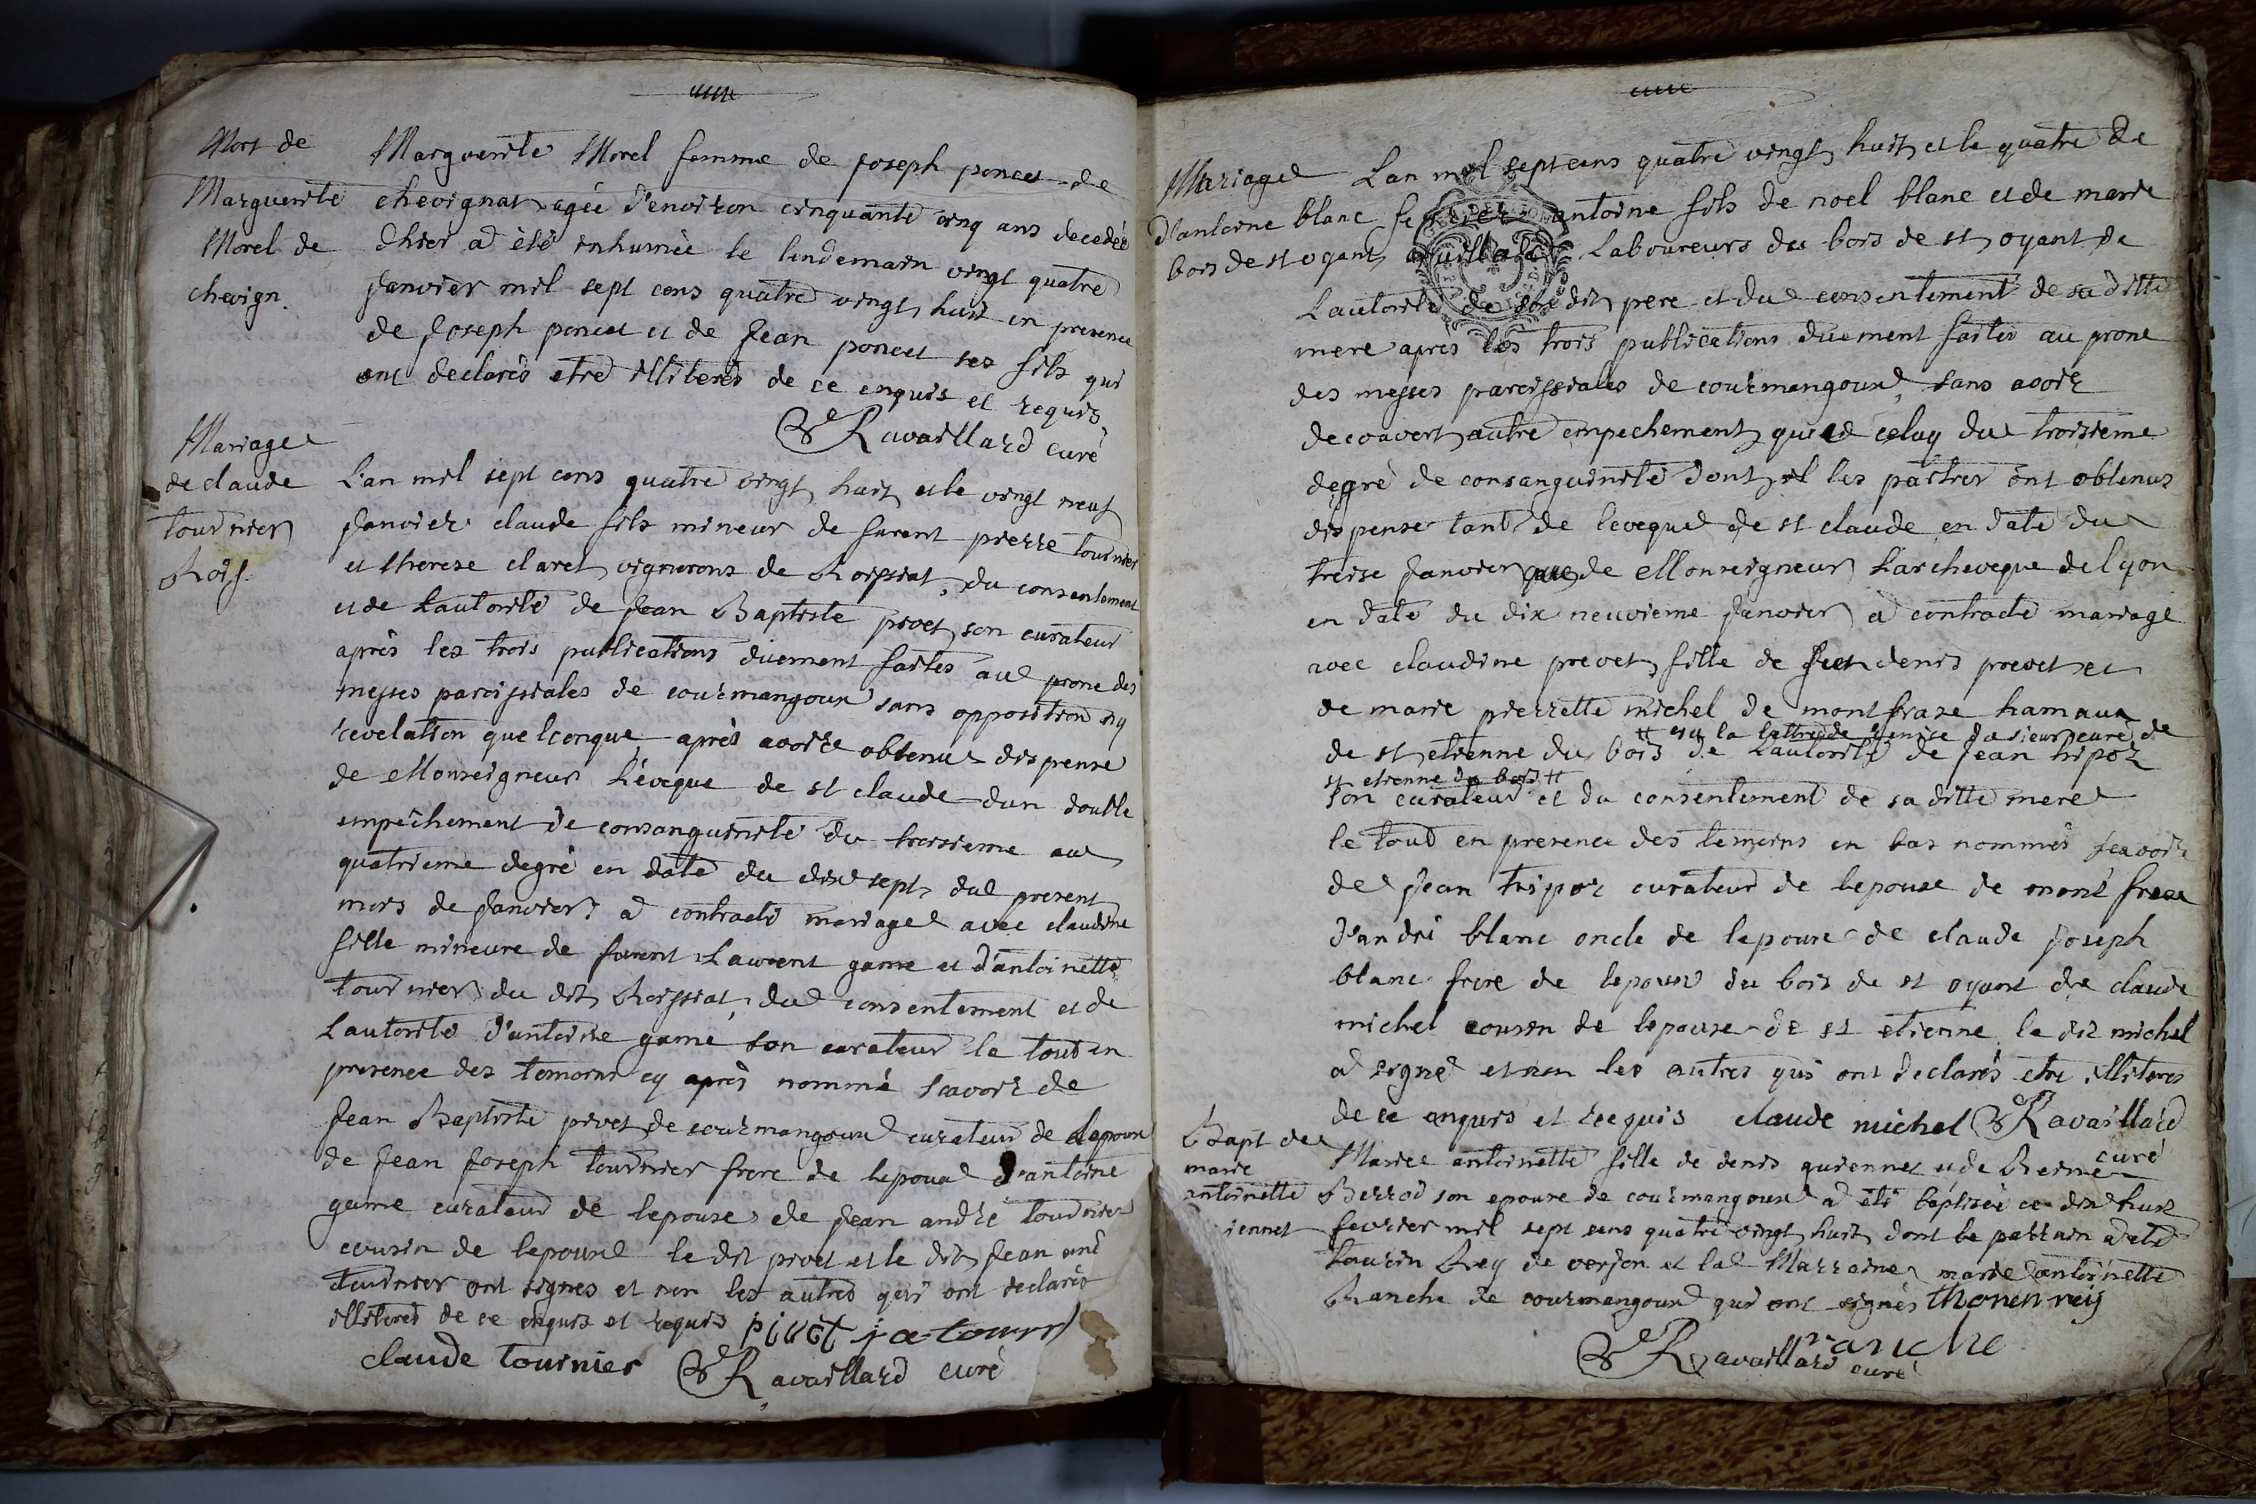 Mort de
Marguerite
Morel de
chevign.
Marguerite Morel femme de joseph poncet de
chevignat agée d'environ cinquante cinq ans decedée
d'hier a été inhumée le lendemain vingt quatre
janvier mil sept cens quatre vingt huit en presence
de joseph poncet et de jean poncet ses fils qui
ont declarés etre illiterés de ce enquis et requis
Ravaillard curé
Mariage
de claude
tournier
Roiss.
L'an mil sept cens quatre vingt huit et le vingt neuf
janvier claude fils mineur de furent pierre tournier
et therese claret vignerons de Roissiat, du consentement
et de l'autorité de jean Baptiste pivet son curateur
après les trois publications duement faites au prone des
messes paroissiales de courmangoux sans opposition ny
revelation quelconque après avoir obtenu dispense
de Monseigneur l'éveque de st claude dun double
empêchement de consanguinité du troisieme au
quatrieme degré en date du dix sept du present
mois de janvier a contracté mariage avec claudine
fille mineure de furent Laurent game et d'antoinette
tournier du dit Roissiat, du consentement et de
L'autorité d'antoine game son curateur le tout en
presence des temoins cy après nommé scavoir de
jean Baptiste pivet de courmangoux curateur de lepoux
de jean joseph tournier frere de lepoux d'antoine
game curateur de lepouse de jean andré tournier
cousin de lepoux le dit pivet et le dit jean and
tournier ont signés et non les autres qui ont declarés
illiterés de ce enquis et requis pivet j a tourn
claude tournier Ravaillard curé
Mariage
d'antoine blanc
bois de st oyant
Lan mil sept cens quatre vingt huit et le quatre de
fevrier antoine fils de noel blanc et de marie
Laboureurs du bois de st oyant de
Lautorité de son dit pere et du consentement de sa ditte
mere apres les trois publications duement faites au prone
des messes paroissiales de courmangoux, sans avoir
decouvert autre empechement que celuy du troisieme
degré de consanguinité dont les parties ont obtenus
dispense tant de leveque de st claude en date du
treise janvier que de Monseigneur L'archeveque de Lyon
en date du dix neuvieme janvier a contracté mariage
avec claudine prevet fille de denis prevet et
de marie pierrette michel de montfraze hamaux
# vu la lettre de remise du sieur curé de
de st etienne du bois de L'autorité de jean tripoz
st etienne du bois #
son curateur et du consentement de sa ditte mere
le tout en presence des temoins en bas nommés scavoir
de jean tripoz curateur de lepouse de mont fraze
d'andré blanc oncle de lepoux de claude joseph
blanc frere de lepoux du bois de st oyant de claude
michel cousin de lepouse de st etienne le dit michel
a signé et non les autres qui ont declarés etre illiteres
de ce enquis et requis claude michel Ravaillard
curé
Bapt de
marie
antoinette
iennet
Marie antoinette fille de denis guiennet et de Reine
Berrod son epouse de courmangoux a été baptisée ce dix huit
fevrier mil sept cens quatre vingt huit dont le parrain a été
Rey de verjon et la Marraine marie antoinette
Ranche de courmangoux qui ont signés thonen reij
ranche
Ravaillard curé